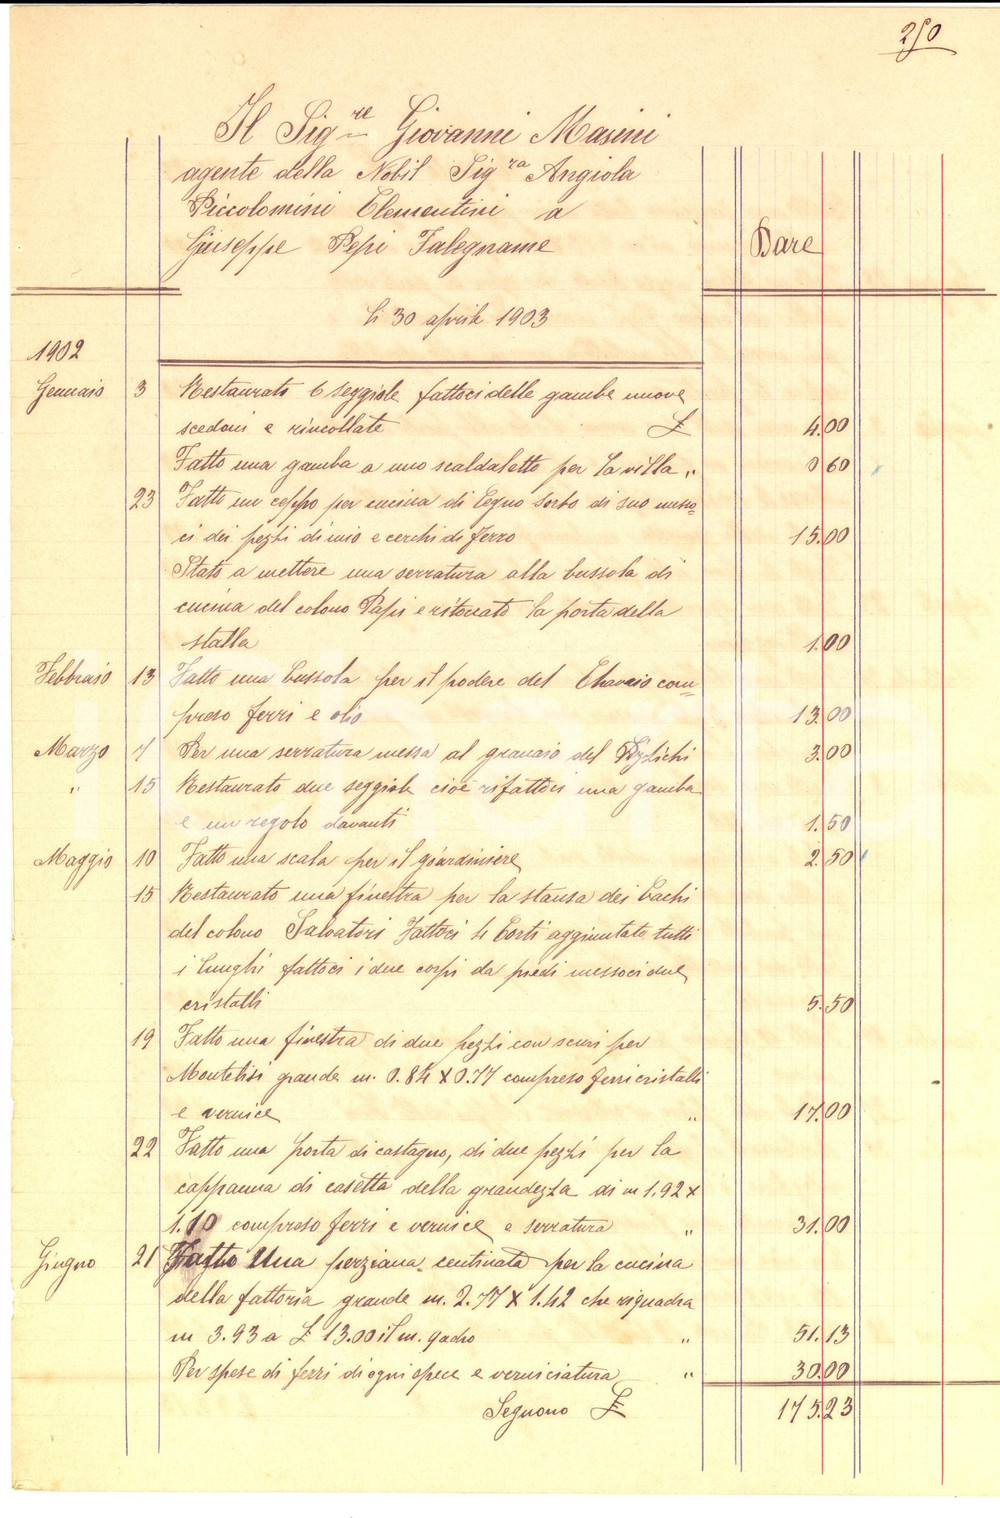 250
Il Sig.re Giovanni Masini
agente della Nobil Sig.ra Angiola
Piccolomini Clementini a
Giuseppe Pepi Falegname
Dare
li 30 aprile 1903
1902
Gennaio 3 Restaurato 6 seggiole fattoci delle gambe nuove
scedoni e rincollate £ 4.00
Fatto una gamba a uno scaldaletto per la villa " 0 60
23 Fatto un ceppo per cucina di legno sorbo di suo messo=
ci dei pezzi di mio e cerchi di ferro 15.00
Stato a mettere una serratura alla bussola di
cucina del colono Papi e ritoccato la porta della
stalla 1.00
Febbraio 13 Fatto una bussola per il podere del com=
preso ferri e olio 13.00
Marzo 7 Per una serratura messa al granaio del 3.00
" 15 Restaurato due seggiole cioè rifattoci una gamba
e un regolo davanti 1.50
Maggio 10 Fatto una scala per il giardiniere 2.50
15 Restaurato una finestra per la stansa dei bachi
del colono Salvatori Fattoci 4 torti aggiuntato tutti
i lunghi fattoci i due corpi da piedi messoci due
cristalli 5.50
19 Fatto una finestra di due pezzi con scuri per
Montelisi grande m. 0.84 X 0.77 compreso ferri cristalli
e vernice " 17.00
22 Fatto una porta di castagno, di due pezzi per la
cappanna di casetta della grandezza di m 1.92 x
1.10 compreso ferri e vernice e serratura " 31.00
Giugno 21 Fatto Una perziana centinata per la cucina
della fattoria grande m. 2.77 X 1.42 che riquadra
m 3.93 a £ 13.00 il m. qadro " 51.13
Per spese di ferri di ogni spece e verniciatura " 30.00
Seguono £ 175.23